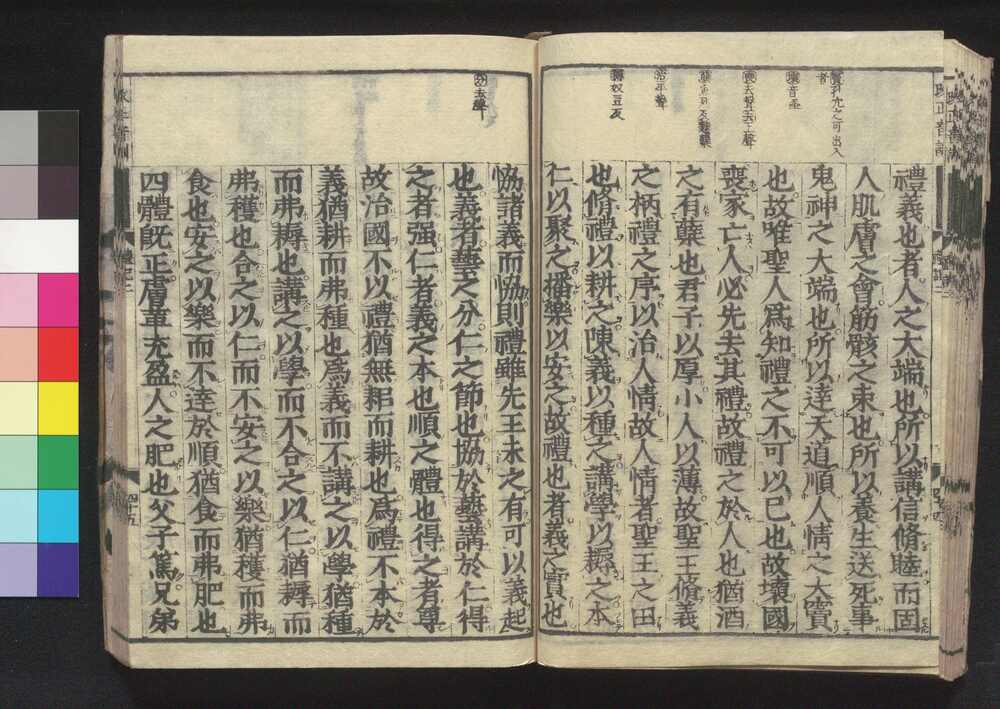 竇孔穴之可出入
者
壞音怪
喪去聲去上聲
蘖魚列反麴蘖
治平聲
耨奴豆反
禮義也者人之大端也所以講信脩睦而固
人肌膚之會筋骸之束也所以養生送死事
鬼神之大端也所以達天道順人情之大竇
也故唯聖人爲知禮之不可以已也故壞國
喪家亡人必先去其禮故禮之於人也猶酒
之有蘖也君子以厚小人以薄故聖王脩義
之柄禮之序以治人情故人情者聖王之田
也脩禮以耕之陳義以種之講學以耨之本
仁以聚之播樂以安之故禮也者義之實也
分去聲
協諸義而協則禮雖先王未之有可以義起
也義者藝之分仁之節也協於藝講於仁得
之者强仁者義之本也順之體也得之者尊
故治國不以禮猶無耜而耕也爲禮不本於
義猶耕而弗種也爲義而不講之以學猶種
而弗耨也講之以學而不合之以仁猶耨而
弗穫也合之以仁而不安之以樂猶穫而弗
食也安之以樂而不達於順猶食而弗肥也
四體既正膚革充盈人之肥也父子篤兄弟
四十五